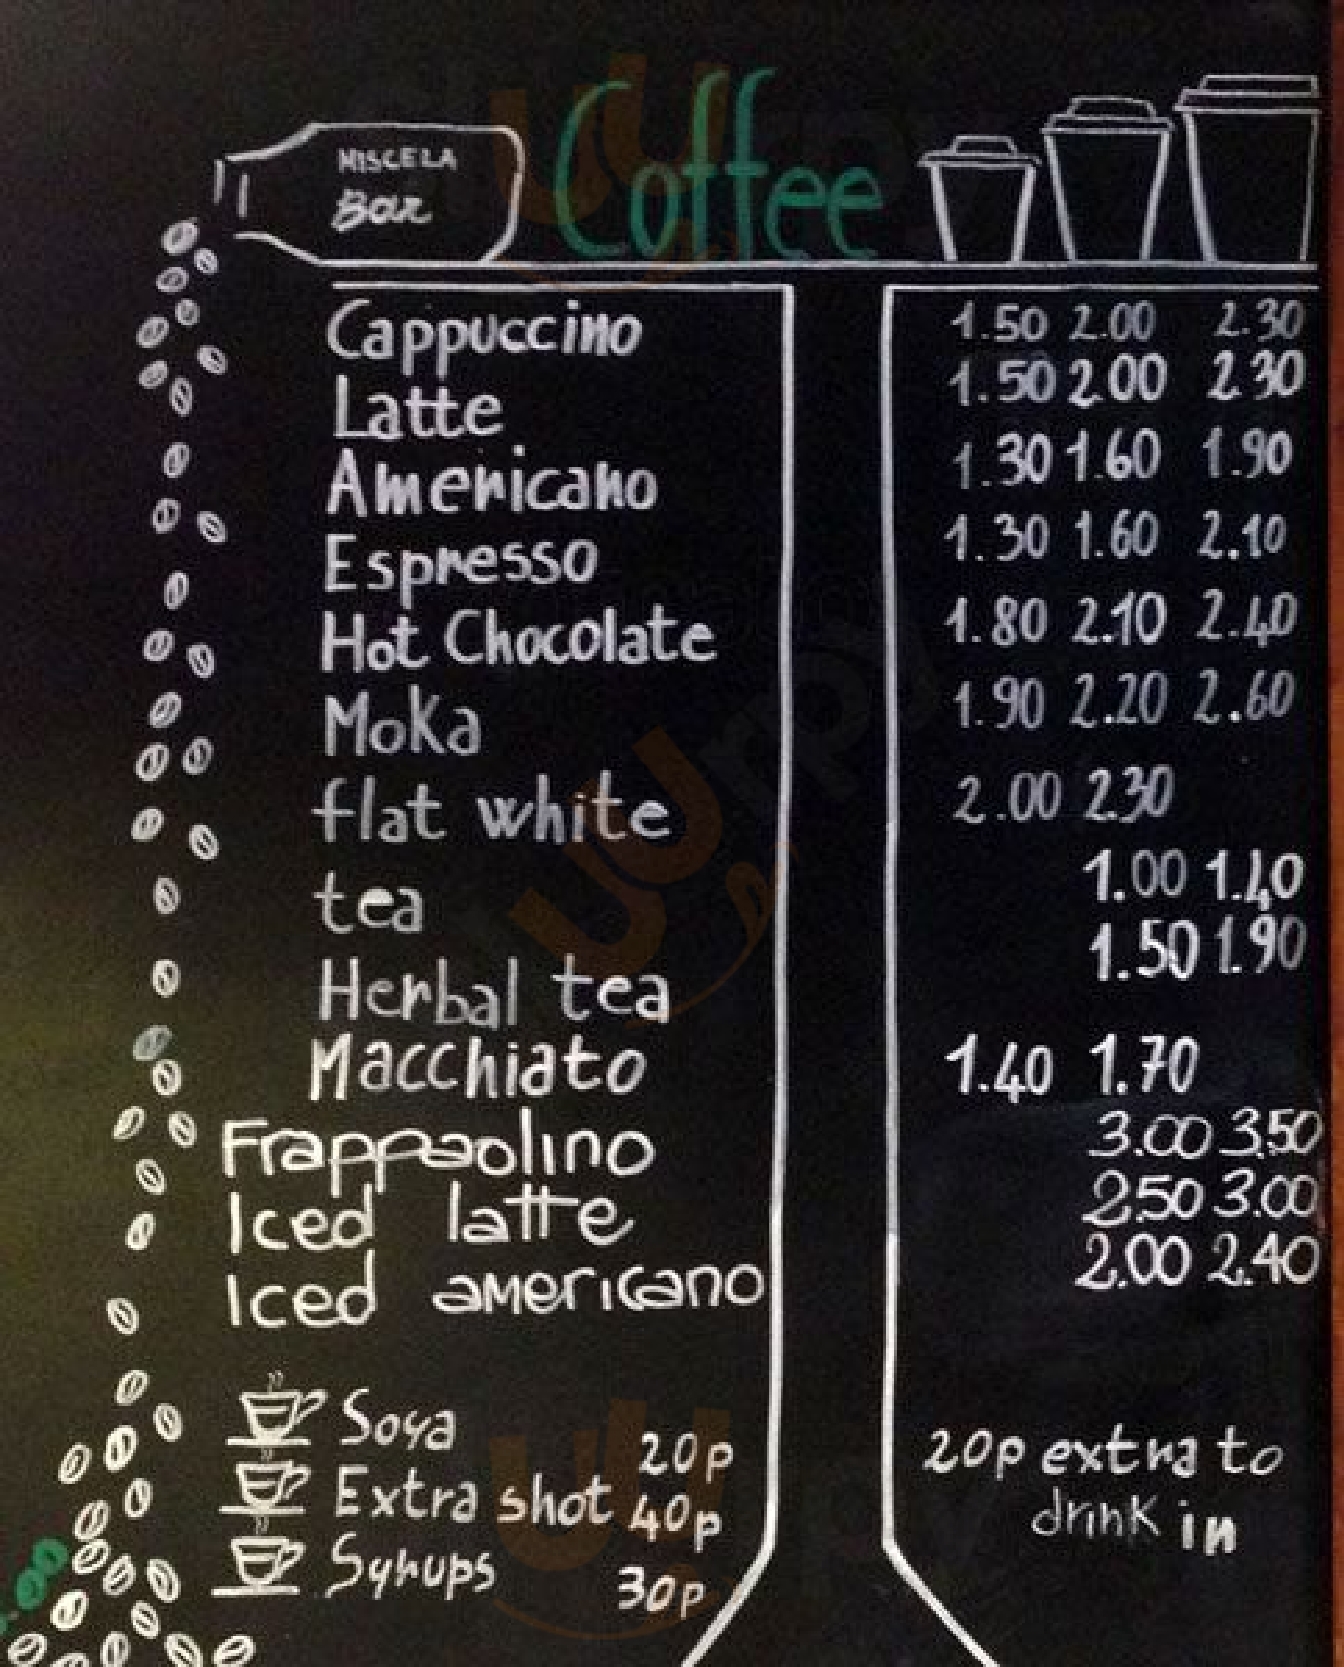 MISCELA
Bar
Coffee
Cappuccino 1.50 2.00 2.30
Latte 1.50 2.00 2.30
Americano 1.30 1.60 1.90
Espresso 1.30 1.60 2.10
Hot Chocolate 1.80 2.10 2.40
Moka 1.90 2.20 2.60
flat white 2.00 2.30
tea 1.00 1.40
Herbal tea 1.50 1.90
Macchiato 1.40 1.70
Frappaolino 3.00 3.50
Iced latte 2.50 3.00
Iced americano 2.00 2.40
Soya 20p
Extra shot 40p
Syrups 30p
20p extra to
drink in